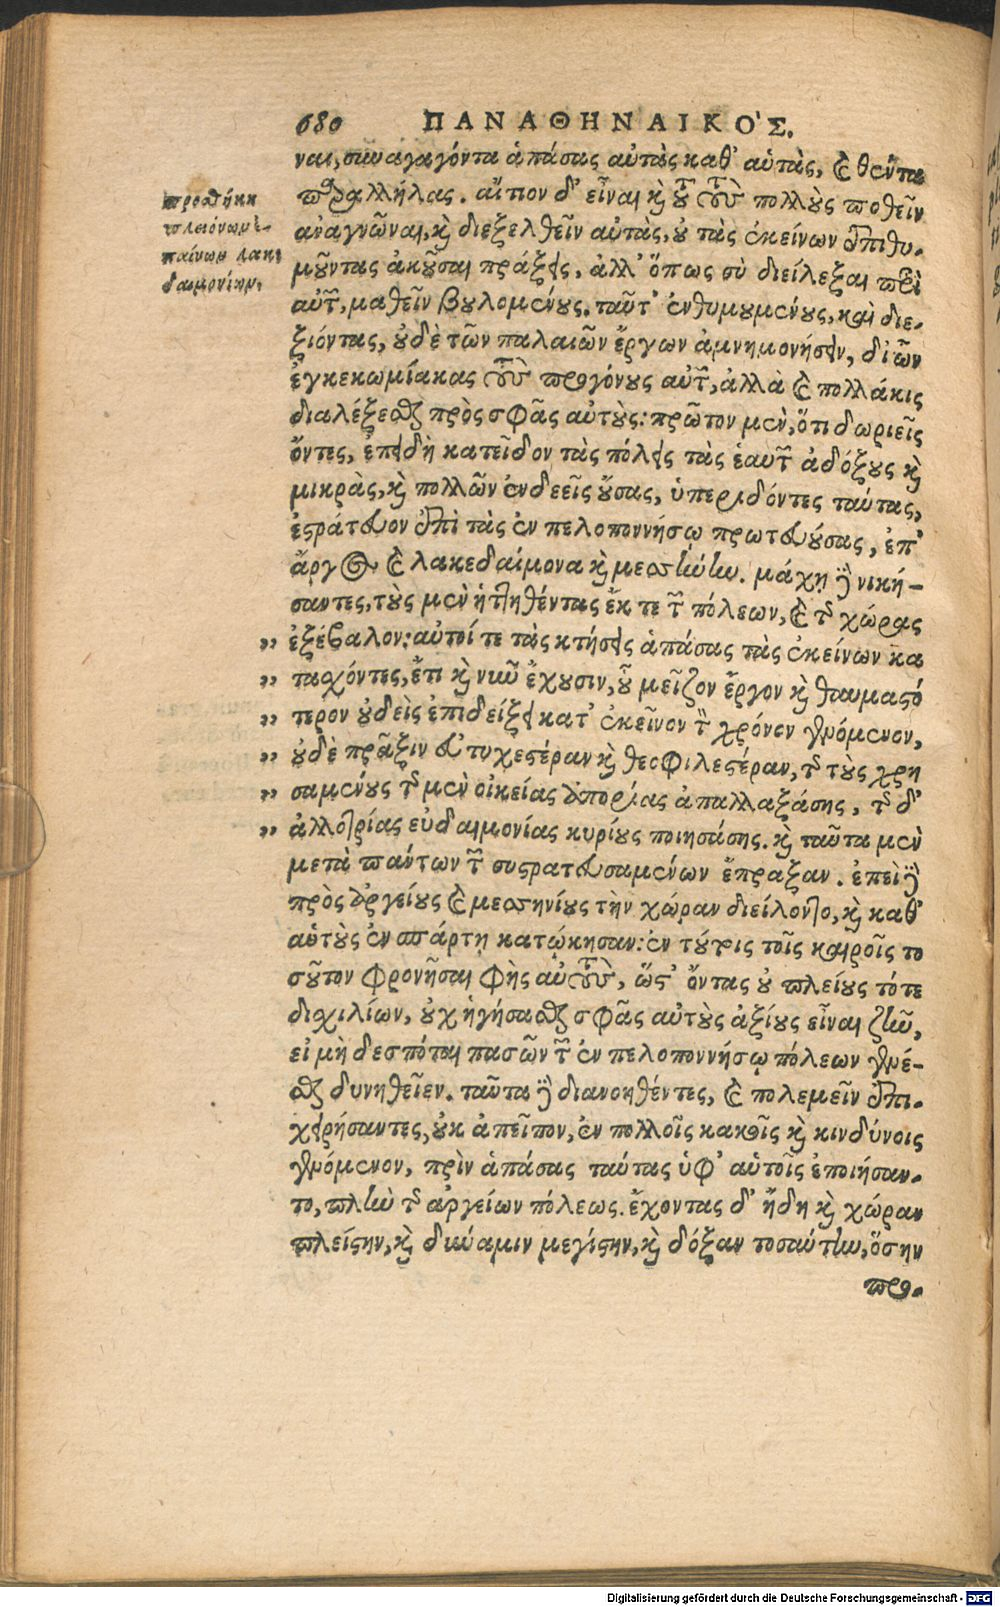 680 ΠΑΝΑΘΗΝΑΙΚΟ'Σ.
ναι, συναγαγόντα ἁπάσας αὐτὰς καθ' αὑτὰς, καὶ θέντα
παραλλήλας. αἴτιον δ' εἶναι καὶ τοῦ τοὺς πολλοὺς ποθεῖν
ἀναγνῶναι, καὶ διεξελθεῖν αὐτὰς, οὐ τὰς ἐκείνων ἐπιθυ-
μοῦντας ἀκοῦσαι πράξεις, ἀλλ' ὅπως σὺ διείλεξαι περὶ
αὐτῶν, μαθεῖν βουλομένους. ταῦτ' ἐνθυμουμένους, καὶ διε-
ξιόντας, οὐδὲ τῶν παλαιῶν ἔργων ἀμνημονήσειν, δι' ὧν
ἐγκεκωμίακας τοὺς προγόνους αὐτῶν, ἀλλὰ καὶ πολλάκις
διαλέξεσθαι πρὸς σφᾶς αὐτούς: πρῶτον μὲν, ὅτι δωριεῖς
ὄντες, ἐπειδὴ κατεῖδον τὰς πόλεις τὰς ἑαυτῶν ἀδόξους καὶ
μικρὰς, καὶ πολλῶν ἐνδεεῖς οὔσας, ὑπεριδόντες ταύτας,
ἐστράτευον ἐπὶ τὰς ἐν πελοποννήσῳ πρωτευούσας, ἐπ'
ἄργος καὶ λακεδαίμονα καὶ μεσσήνην. μάχῃ δὲ νική-
σαντες, τοὺς μὲν ἡττηθέντας ἔκ τε τῶν πόλεων, καὶ τῆς χώρας
" ἐξέβαλον: αὐτοί τε τὰς κτήσεις ἁπάσας τὰς ἐκείνων κα
" τασχόντες, ἔτι καὶ νῦν ἔχουσιν, οὗ μεῖζον ἔργον καὶ θαυμαστό
" τερον οὐδεὶς ἐπιδείξει κατ' ἐκεῖνον τὸν χρόνον γενόμενον,
" οὐδὲ πρᾶξιν εὐτυχεστέραν καὶ θεοφιλεστέραν, τῆς τοὺς χρη
" σαμένους τῆς μὲν οἰκείας ἀπορίας ἀπαλλαξάσης, τῆς δ'
" ἀλλοτρίας εὐδαιμονίας κυρίους ποιησάσης. καὶ ταῦτα μὲν
μετὰ πάντων τῶν συστρατευσαμένων ἔπραξαν. ἐπεὶ δὲ
πρὸς ἀργείους καὶ μεσσηνίους τὴν χώραν διείλοντο, καὶ καθ'
αὑτοὺς ἐν σπάρτῃ κατῴκησαν: ἐν τούτοις τοῖς καιροῖς το
σοῦτον φρονῆσαι φὴς αὐτοὺς, ὥστ' ὄντας οὐ πλείους τότε
δισχιλίων, οὐχ ἡγήσασθαι σφᾶς αὐτοὺς ἀξίους εἶναι ζῆν,
εἰ μὴ δεσπόται πασῶν τῶν ἐν πελοποννήσῳ πόλεων γενέ-
σθαι δυνηθεῖεν. ταῦτα δὲ διανοηθέντες, καὶ πολεμεῖν ἐπι-
χειρήσαντες, οὐκ ἀπεῖπον, ἐν πολλοῖς κακοῖς καὶ κινδύνοις
γενόμενον, πρὶν ἁπάσας ταύτας ὑφ' αὑτοῖς ἐποιήσαν-
το, πλὴν τῆς ἀργείων πόλεως. ἔχοντας δ' ἤδη καὶ χώραν
πλείστην, καὶ δύναμιν μεγίστην, καὶ δόξαν τοσαύτην, ὅσην
προ-
προσθήκη
πλειόνων ἐ-
παίνων λακε
δαιμονίων,
Digitalisierung gefördert durch die Deutsche Forschungsgemeinschaft - DFG